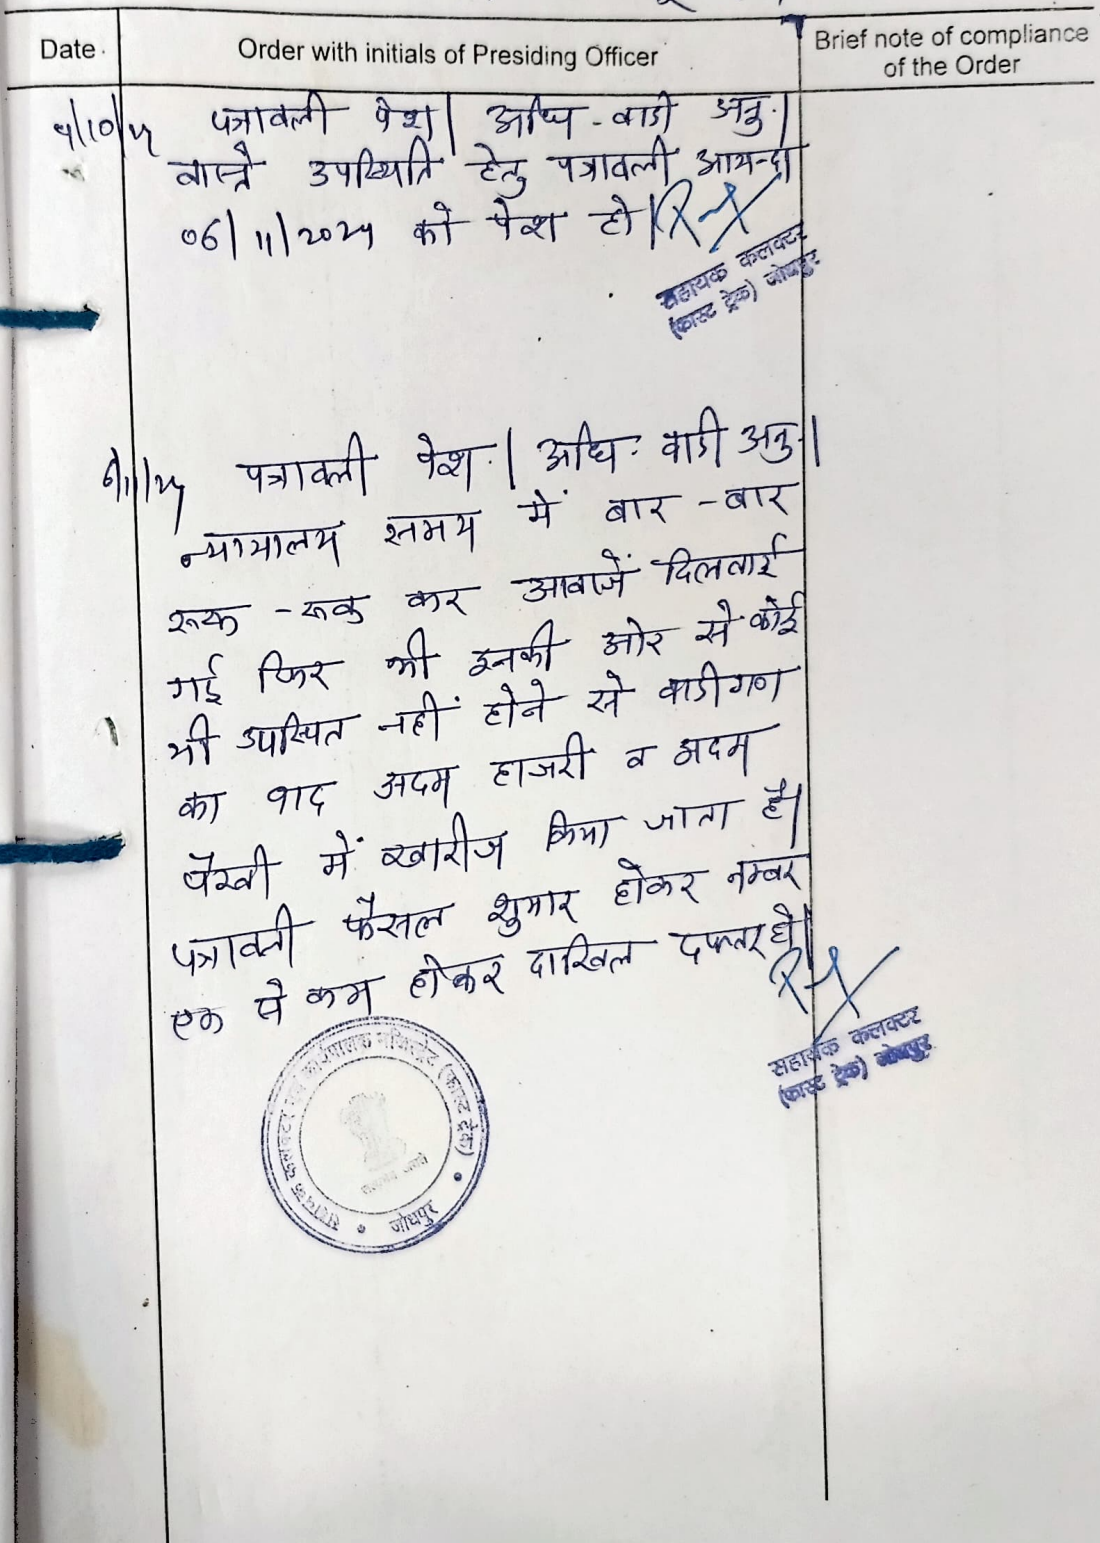 Date
Order with initials of Presiding Officer
Brief note of compliance
of the Order
पत्रावली पेश। अधि-वादी अनु.।
वास्ते उपस्थिति हेतु पत्रावली आयन्दा
06/11/2024 को पेश हो।
सहायक कलक्टर
(फास्ट ट्रेक) जोधपुर
6/11/24 पत्रावली पेश.। अधि. वादी अनु.।
न्यायालय समय में बार-बार
रूक-रूक कर आवाजें दिलवाई
गई फिर भी इनकी ओर से कोई
भी उपस्थित नहीं होने से वादीगण
का वाद अदम हाजरी व अदम
पैरवी में खारीज किया जाता है।
पत्रावली फैसल शुमार होकर नम्बर
एक से कम होकर दाखिल दफ्तर हो।
सहायक कलक्टर
(फास्ट ट्रेक) जोधपुर
सहायक कलक्टर एवं कार्यपालक मजिस्ट्रेट (फास्ट ट्रेक)
जोधपुर